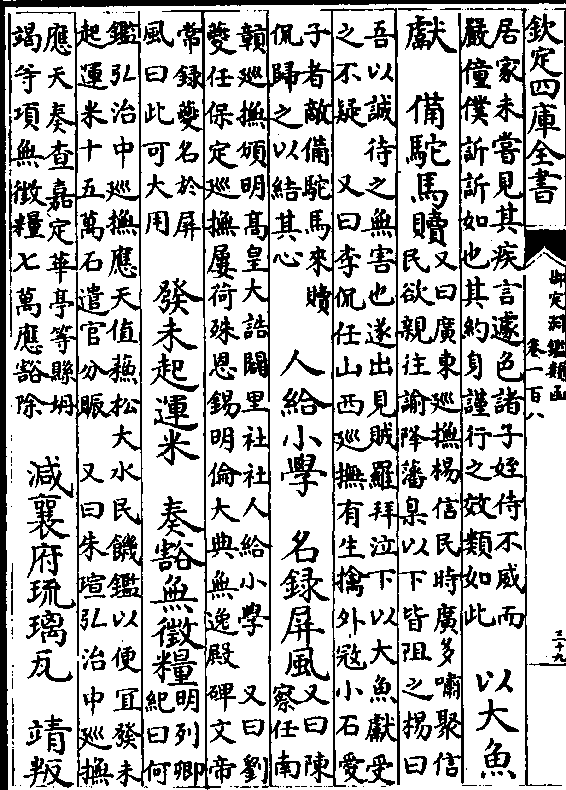 欽定四庫全書
御定淵鑑類函
卷一百八
三十九
居家未嘗見其疾言遽色諸子姪侍不威而
嚴僮僕訢訢如也其約身謹行之效類如此
以大魚
獻 備駝馬贖
又曰廣東巡撫楊信民時廣多嘯聚信
民欲親往諭降藩臬以下皆阻之楊曰
吾以誠待之無害也遂出見賊羅拜泣下以大魚獻受
之不疑 又曰李侃任山西巡撫有生擒外冦小石愛
子者敵備駝馬來贖
侃歸之以結其心
人給小學 名録屏風
又曰陳
察任南
贛巡撫頒明髙皇大誥闢里社社人給小學 又曰劉
夔任保定巡撫屢荷殊恩錫明倫大典無逸殿碑文帝
常録夔名於屏
風曰此可大用
發未起運米 奏豁無徵糧
明列卿
紀曰何
鑑弘治中巡撫應天值蘓松大水民饑鑑以便宜發未
起運米十五萬石遣官分賑 又曰朱瑄弘治中巡撫
應天奏查嘉定華亭等縣坍
竭等項無徵糧七萬應豁除
減襄府琉璃瓦 靖叛